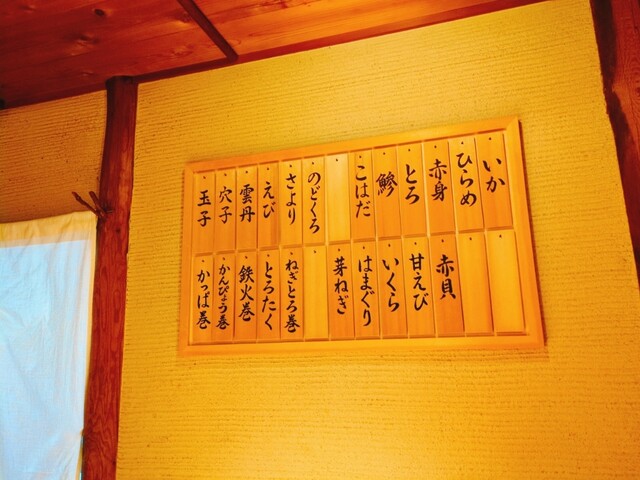 いか
ひらめ
赤身
とろ
鯵
こはだ
のどくろ
さより
えび
雲丹
穴子
玉子
赤貝
甘えび
いくら
はまぐり
芽ねぎ
ねぎとろ巻
とろたく
鉄火巻
かんぴょう巻
かっぱ巻